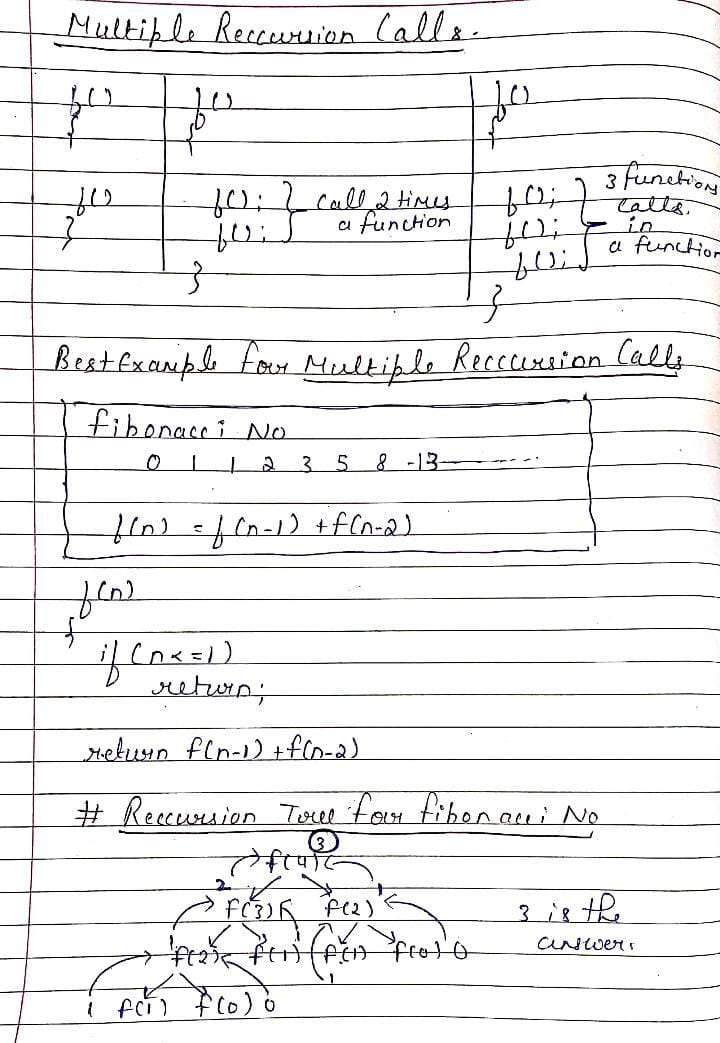 Multiple Reccursion Calls.
f() f() f()
{ { {
f() f(); } Call 2 times f(); } 3 function
} f(); a function f(); calls.
f(); in
} a function
}
Best Example for Multiple Reccursion Calls
fibonacci NO
0 1 1 2 3 5 8 -13-------
f(n) = f(n-1) + f(n-2)
f(n)
{
if (n<=1)
return;
return f(n-1) + f(n-2)
# Reccursion Tree for fibonacci NO
3
f(4)
2 1
f(3) f(2) 3 is the
1 f(2) f(1) f(1) f(0) 0 answer.
1
1 f(1) f(0) 0